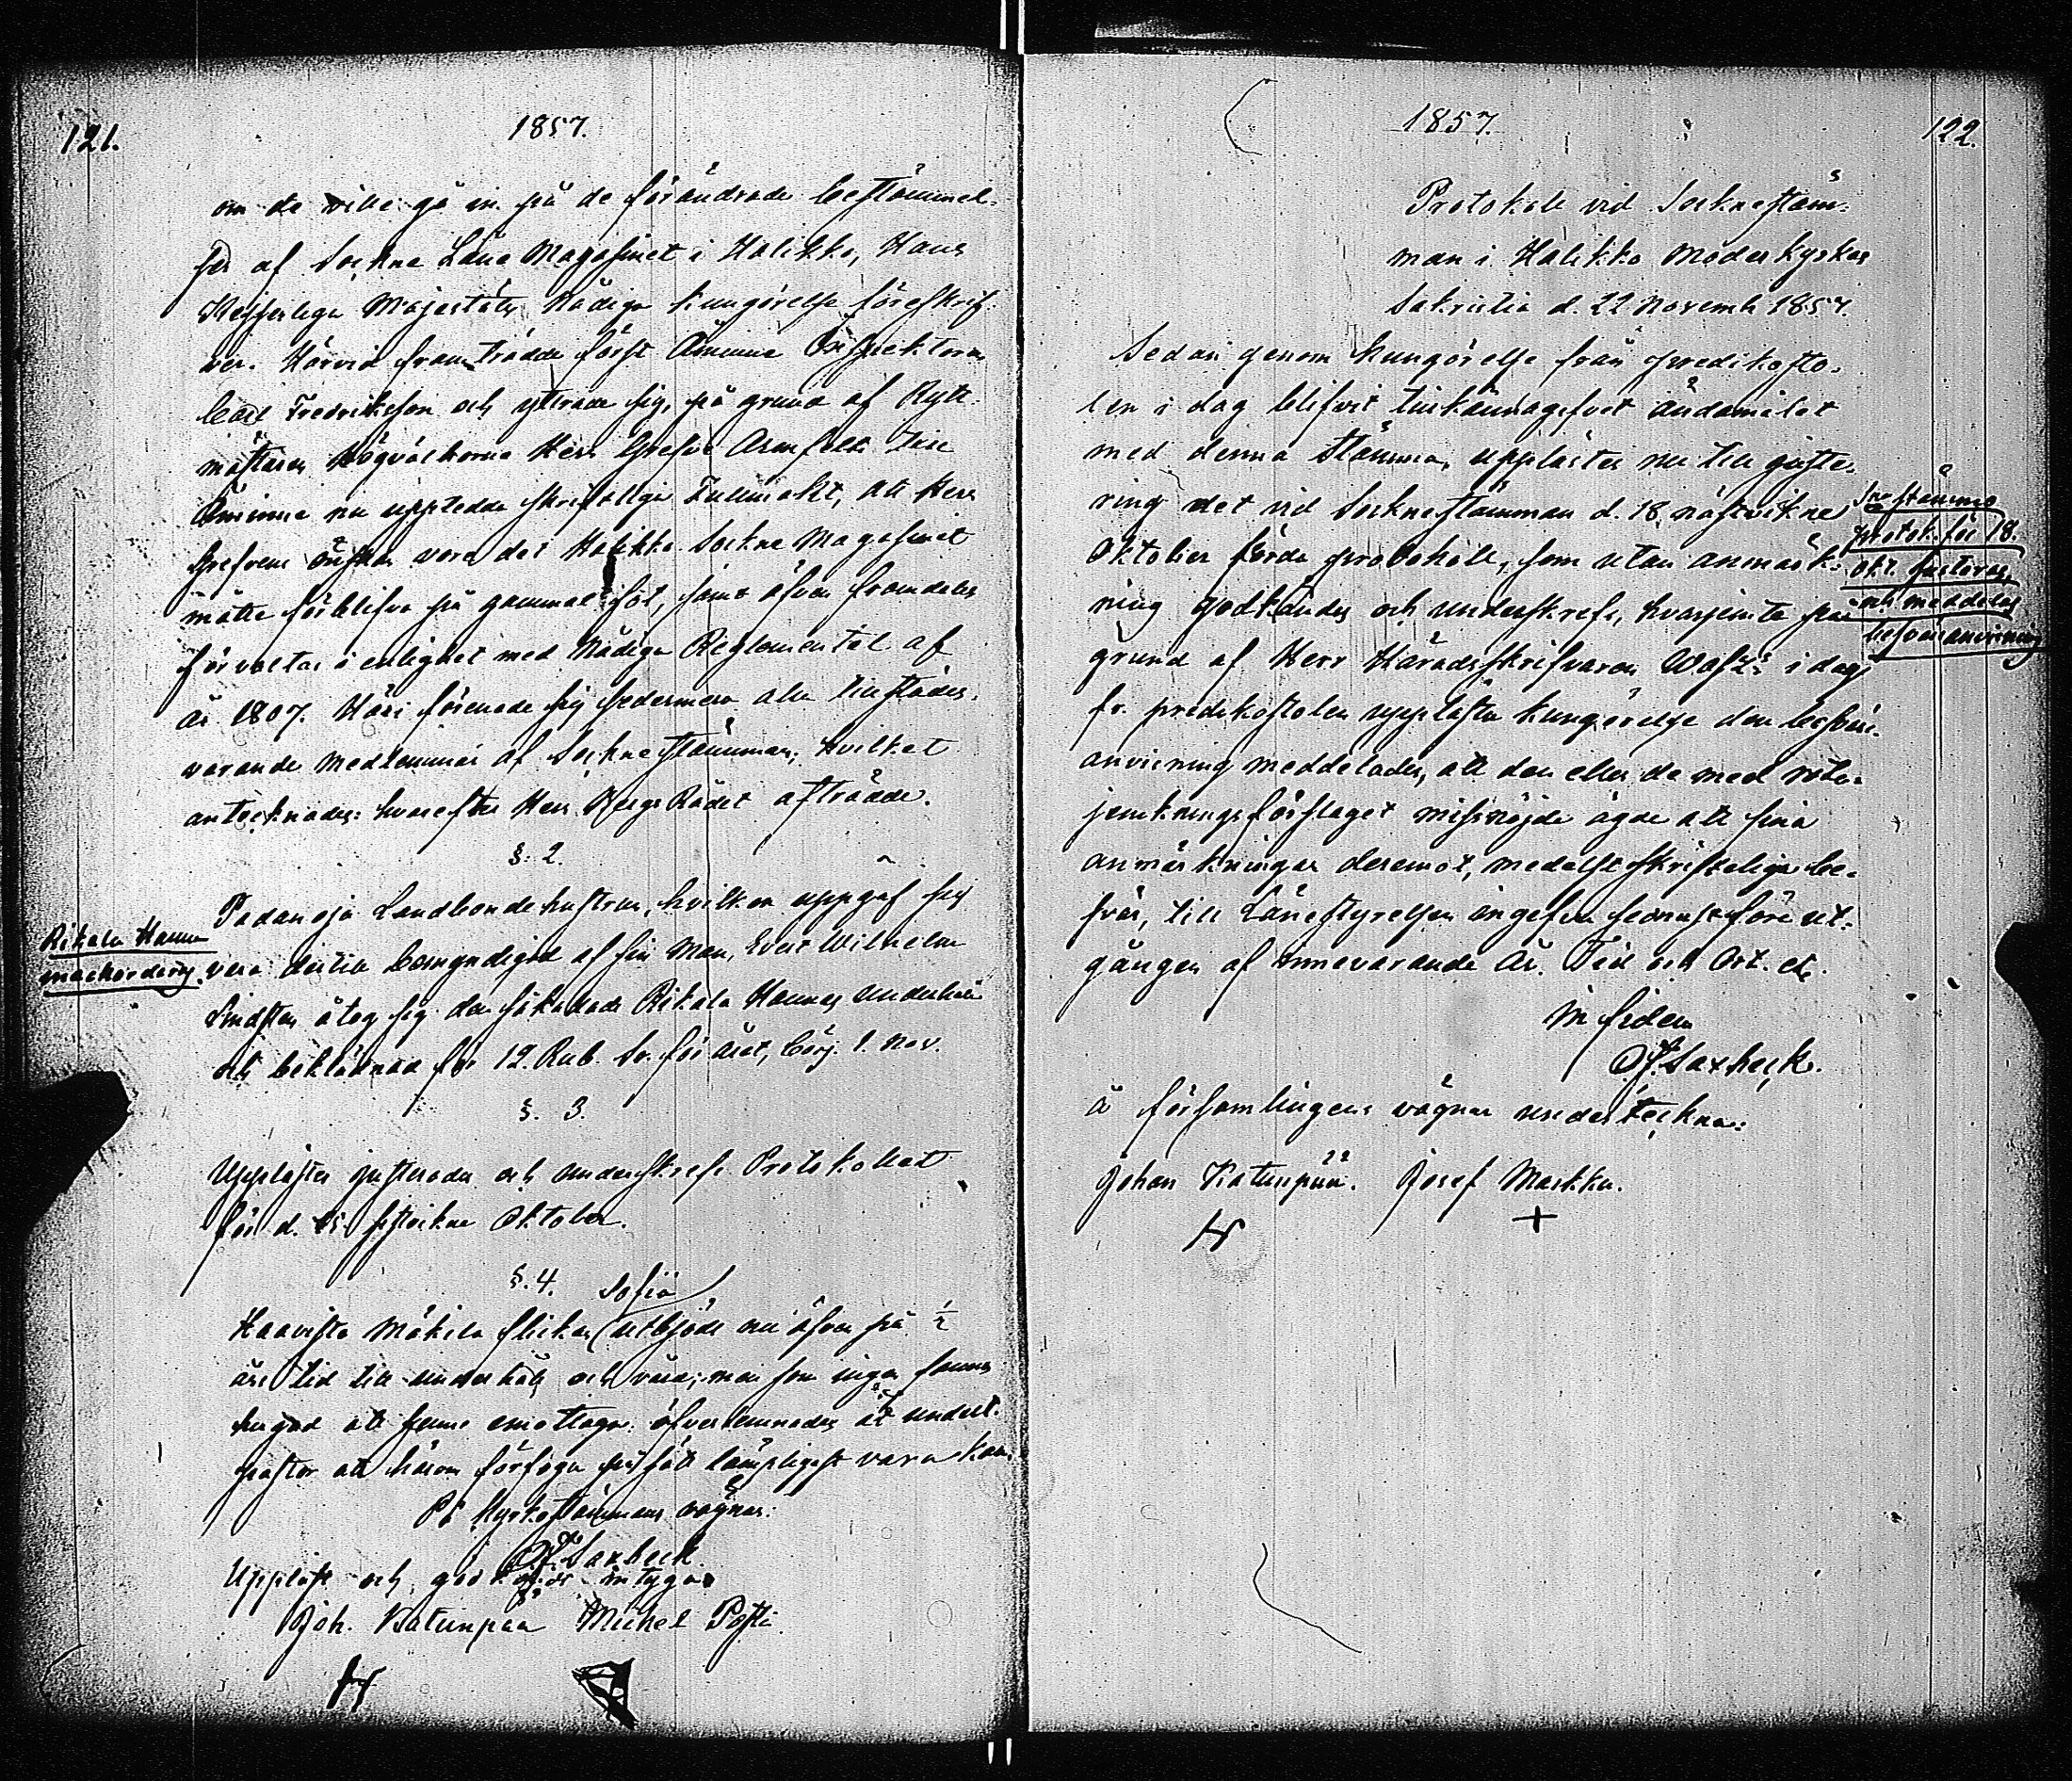 121.
1857.
om de ville gå in på de förändrade bestämmel-
ser af Sockne Låne Magasinet i Halikko, Hans
Kejserliga Majestäts Nådiga Kungörelse föreskrif-
ver. Härvid framträdde först Åminne Inspektoren
Carl Fredriksson och yttrade sig, på grund af Rytt-
mästaren Högvälborne Herr Grefve Armfelts till
Åminne nu upptedda skriftliga Fullmakt, att Herr
Grefvens önskan vore det Halikko Sockne Magasinet
måtte förblifva på gammal fot, samt äfven framdeles
förvaltas i enlighet med Nådiga Reglementet af
år 1807. Häri förenade sig sedermera alla tillstädes-
varande medlemmar af Sockne stämman; hvilket
antecknades: hvarefter Herr Krigs Rådet afträdde.
§. 2.
Rikala Hanna
Padanoja Landbondehustrun, hvilken uppgaf sig
vara dertill bemyndigad af sin Man, Evert Wilhelm
Lindsten åtog sig den Rikala Hannas underhåll
och beklädnad för 12. Rub. Sr. för året, börj. 1. Nov.
§. 3.
Upplästes justerades och underskrefs Protokollet
för d. 18 sistvikne Oktober.
§. 4.
Sofia
Haavisto Mäkilä flickan utbjöds nu äfven på ½
års tid till underhåll och vård; men som ingen fanns
hugad att henne emottaga: öfverlemnades åt undert.
pastor att härom förfoga på sätt lämpligast vara kan.
På Kyrkostämmans vägnar:
Of. Saxbeck.
Uppläst och godkändt intyga
Joh. Katunpää Michel Posti.
1857.
122.
Protokoll vid Socknestäm-
man i Halikko Moderkyrkas
Sakristia d. 22 Novemb. 1857.
Sedan genom Kungörelse från predikosto-
len i dag blifvit tillkännagifvet ändamålet
med denna stämma, upplästes nu till juste-
ring det vid Sockne stämman d. 18 nästvikne
Oktober förda protokoll, som utan anmärk-
ning godkändes och underskrefs, hvarjemte på
grund af Herr Häradsskrifvaren i dag
fr. predikostolen upplästa kungörelse den besvärs-
anvisning meddelades, att den eller de med rote-
jemkningsförslaget missnöjde ägde att sina
anmärkningar deremot, medelst skriftelige be-
svär, till Länestyrelsen ingifva sednast före ut-
gången af innevarande År. Tid och Ort. etc.
In fidem
Of. Saxbeck.
Å församlingens vägnar underteckna:
Johan Katunpää. Josef Markku.
+
Snestämmo
protok. för 18.
okt. justeras,
och meddelas
besvärsanvisning